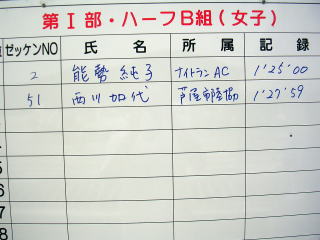 第Ⅰ部・ハーフB組(女子)
ゼッケンNO 氏 名 所 属 記 録
2 能勢 純子 ナイトランAC 1°25'00
51 西川 加代 芦屋市陸協 1°27'59
5
6
7
8